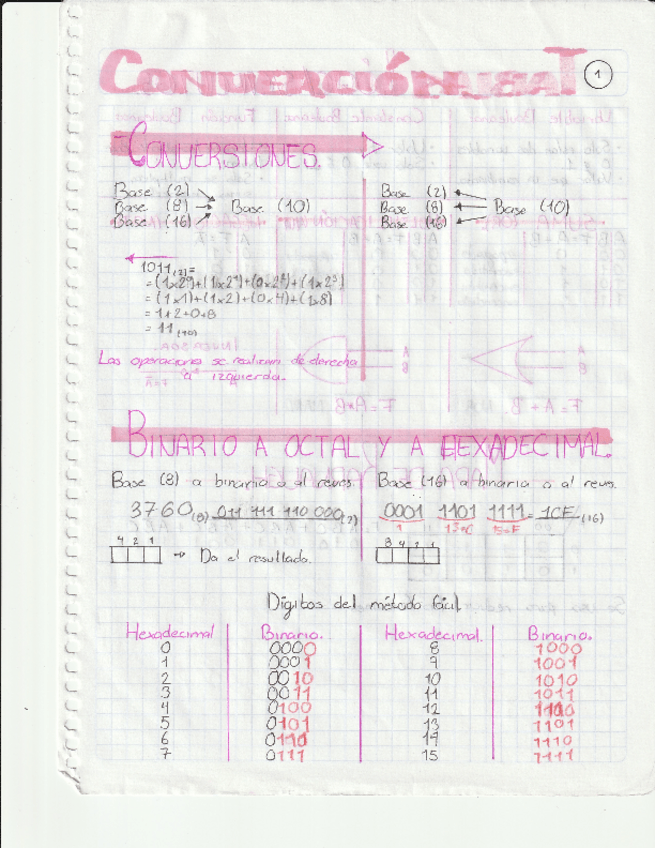 CONVERCIÓN
1
CONVERSIONES.
Base (2)
Base (8) → Base (10)
Base (16)
Base (2)
Base (8) ← Base (10)
Base (16)
1011(2)=
=(1x2⁰)+(1x2¹)+(0x2²)+(1x2³)
=(1x1)+(1x2)+(0x4)+(1x8)
=1+2+0+8
=11(10)
Las operaciones se realizan de derecha
a izquierda.
BINARIO A OCTAL Y A HEXADECIMAL.
Base (8) a binario o al reves.
3760(8) 011 111 110 000(2)
4 2 1
→ Da el resultado.
Base (16) a binario o al reves.
0001 1101 1111 = 1CF(16)
1 13=C 15=F
8 4 2 1
Digitos del método fácil
Hexadecimal Binario. Hexadecimal. Binario.
0 0000 8 1000
1 0001 9 1001
2 0010 10 1010
3 0011 11 1011
4 0100 12 1100
5 0101 13 1101
6 0110 14 1110
7 0111 15 1111